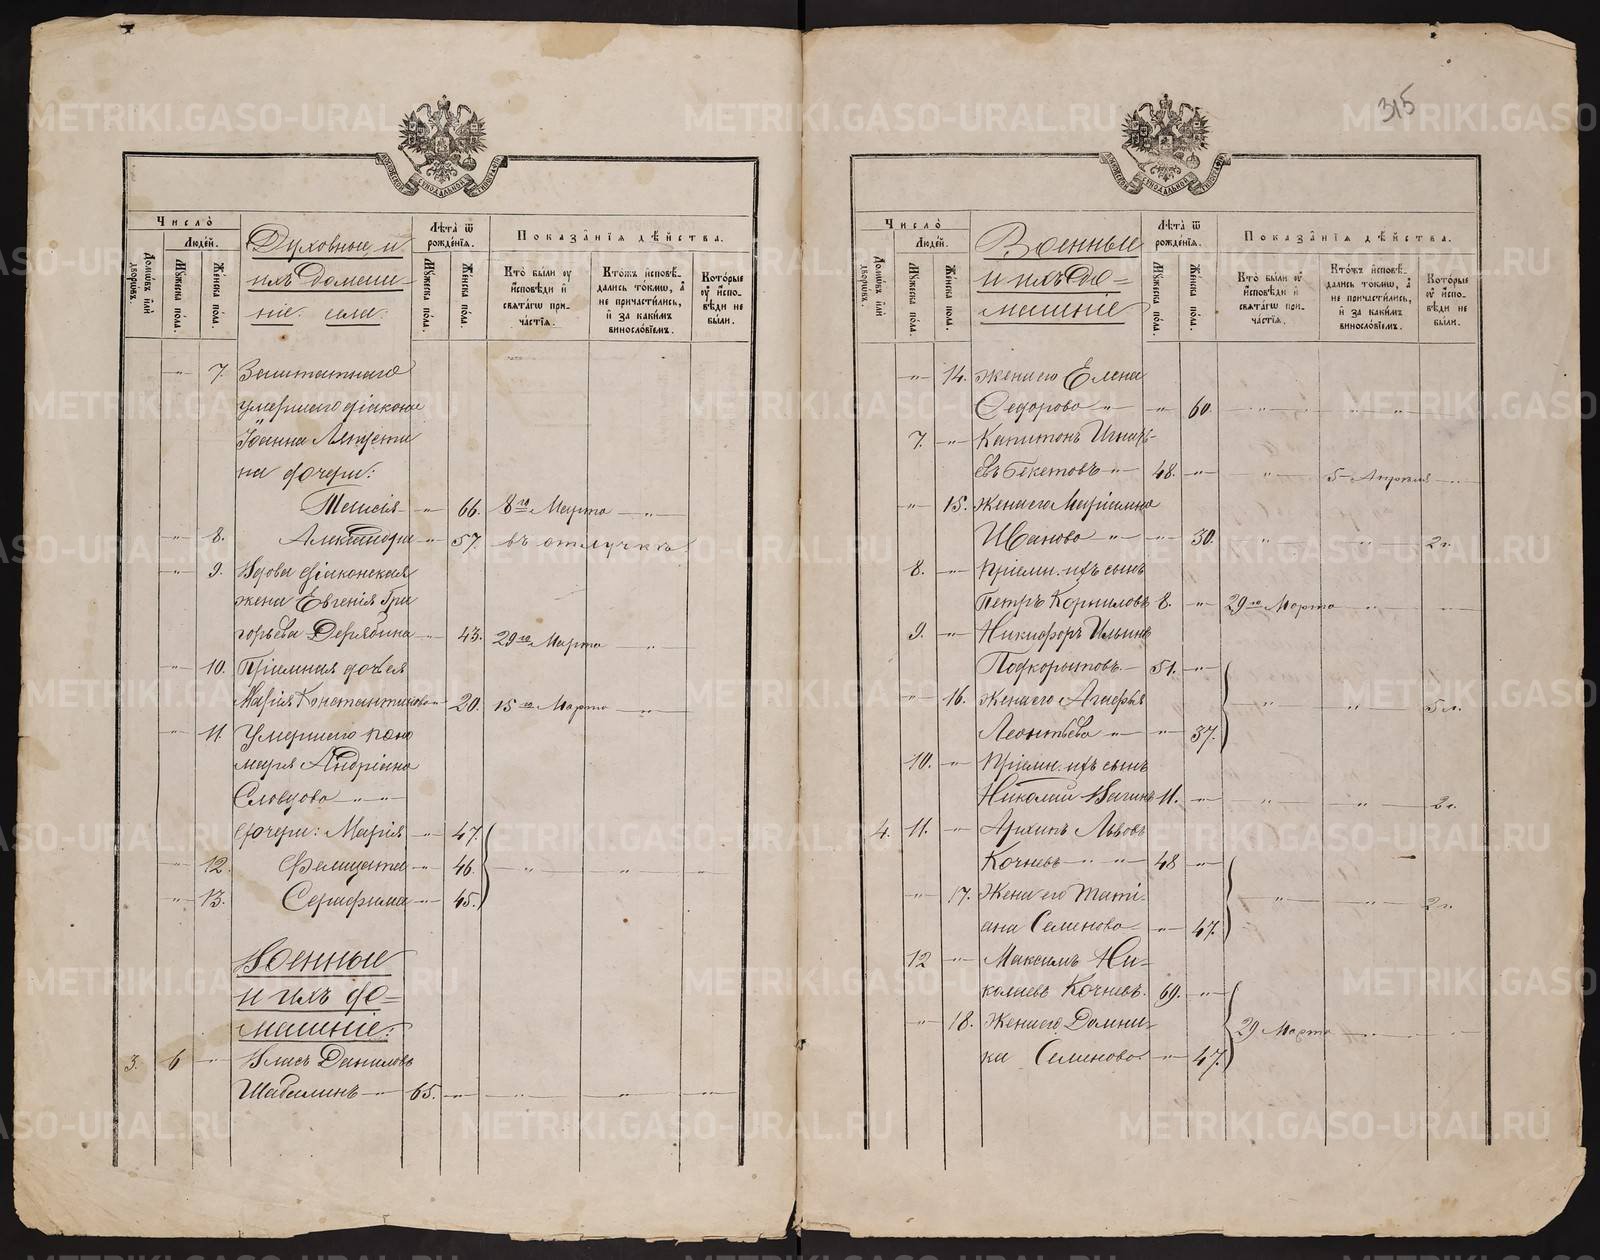 315
МОСКОВСКОЙ СѴНОДАЛЬНОЙ ТИПОГРАФІИ
Число̀
Люде́й.
Домѡ́въ и҆лѝ дворѡ́въ.
Мꙋ́жеска по́ла.
Же́нска по́ла.
Духовные и
ихъ домаш
ніе.
Лѣ́та ѿ рожде́нїѧ.
Мꙋ́жеска по́ла.
Же́нска по́ла.
Показа̑нїѧ дѣ́йства.
Кто̀ бы́ли ᲂу҆
и҆́сповѣди и҆
свѧта́гѡ при-
ча́стїѧ.
Кто́жъ и҆сповѣ́-
дались то́кмѡ, а҆
не причасти́лись,
и҆ за каки́мъ
винослові́емъ.
Кото́рые
ᲂу҆ и҆́спо-
вѣди не
бы́ли.
-"- 7. Заштатнаго
умершаго діакона
Іоанна Ляпусти
на дочери:
Таисія -"- 66. 8го Марта -"-
-"- 8. -"- 57. въ отлучкѣ
-"- 9. Вдова діаконская
жена Евгенія Гри
горьева Дерябина -"- 43. 29го Марта -"-
-"- 10. Пріемная дочь ея
Марія Константинова -"- 20. 15го Марта -"-
-"- 11. Умершаго поно
маря Андріана
Словцова -"-"-
дочери: Марія -"- 47.
-"- 12. Фелицата -"- 46. -"- -"- -"-
-"- 13. Серафима -"- 45.
Военные
и ихъ до=
машніе:
3. 6 -"- Власъ Даниловъ
Шабалинъ -"- 65. -"- -"- -"- -"-
Число̀
Люде́й.
Домѡ́въ и҆лѝ дворѡ́въ.
Мꙋ́жеска по́ла.
Же́нска по́ла.
Военные
и ихъ до=
машніе
Лѣ́та ѿ рожде́нїѧ.
Мꙋ́жеска по́ла.
Же́нска по́ла.
Показа̑нїѧ дѣ́йства.
Кто̀ бы́ли ᲂу҆
и҆́сповѣди и҆
свѧта́гѡ при-
ча́стїѧ.
Кто́жъ и҆сповѣ́-
дались то́кмѡ, а҆
не причасти́лись,
и҆ за каки́мъ
винослові́емъ.
Кото́рые
ᲂу҆ и҆́спо-
вѣди не
бы́ли.
-"- 14. Жена его Елена
Федорова -"- -"- 60. -"- -"- -"-
7. -"- Капитонъ Игнать-
евъ Бекетовъ -"- 48. -"- -"- 5 Апрѣля -"-
-"- 15. Жена его Маріамна
Иванова -"- -"- 30. -"- -"- 2 г.
8. -"- Пріемн. ихъ сынъ
Петръ Корниловъ 8. -"- 29го Марта -"- -"-
9. -"- Никифоръ Ильинъ
Подкорытовъ 51. -"-
-"- 16. Жена его Агафья -"- -"- 5 л.
Леонтьева -"- -"- 37.
10. -"- Пріемн. ихъ сынъ
Николай Вагинъ 11. -"- -"- -"- 2 г.
4. 11. -"- Архипъ Львовъ
Кочневъ -"- -"- 48 -"-
-"- 17. Жена его Таті- -"- -"- 2 г.
ана Семенова -"- 47.
12 -"- Максимъ Ни-
колаевъ Кочневъ. 69. -"-
-"- 18. Жена его Домни- 29 Марта -"- -"-
ка Семенова -"- 47.
METRIKI.GASO-URAL.RU